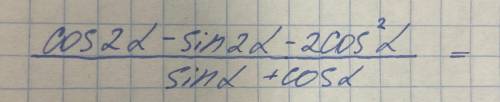 cos2α - sin2α - 2cos²α
sinα + cosα =